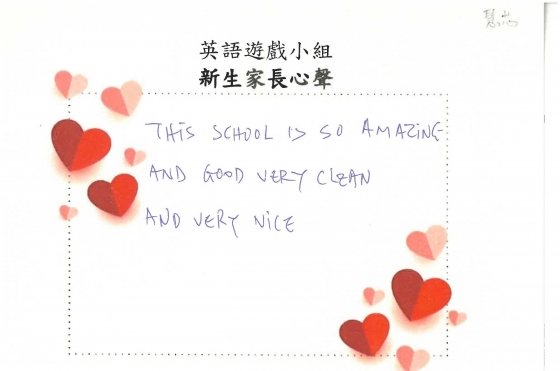 慧尚
英語遊戲小組
新生家長心聲
THIS SCHOOL IS SO AMAZING
AND GOOD VERY CLEAN
AND VERY NICE